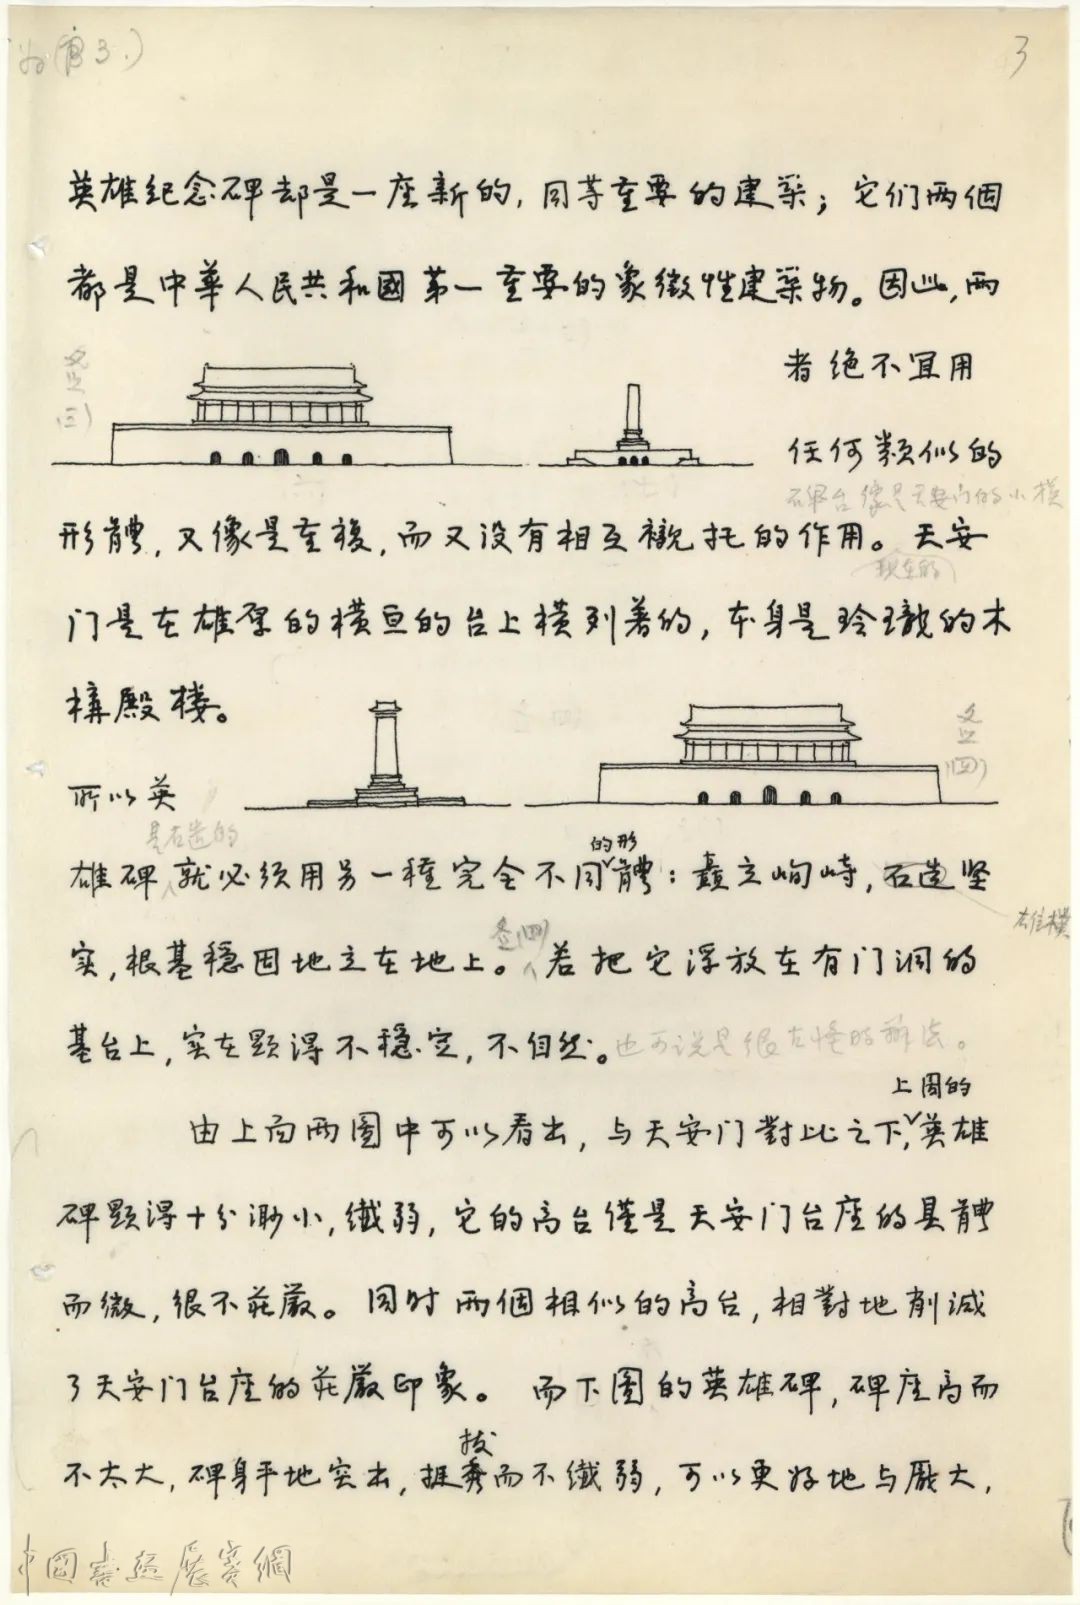 3
英雄纪念碑却是一座新的，同等重要的建築；它们两個
都是中華人民共和國第一重要的象徵性建築物。因此，两
者绝不宜用
任何類似的
碑台像是天安门的小模
形體，又像是重複，而又没有相互襯托的作用。天安
现在的
门是在雄厚的横亘的台上横列着的，本身是玲瓏的木
構殿楼。
所以英
是石造的
的形
雄碑就必须用另一種完全不同體：矗立峋峙，石造坚
雄樸
实，根基穩固地立在地上。若把它浮放在有门洞的
基台上，实在顯得不穩定，不自然。也可说是很古怪的辦法。
上図的
由上面两圖中可以看出，与天安门對比之下，英雄
碑顯得十分渺小，纖弱，它的高台僅是天安门台座的具體
而微，很不莊嚴。同时两個相似的高台，相對地削减
了天安门台座的莊嚴印象。而下圖的英雄碑，碑座高而
拔
不太大，碑身平地突出，挺秀而不纖弱，可以更好地与龐大，
中國書法展賽網